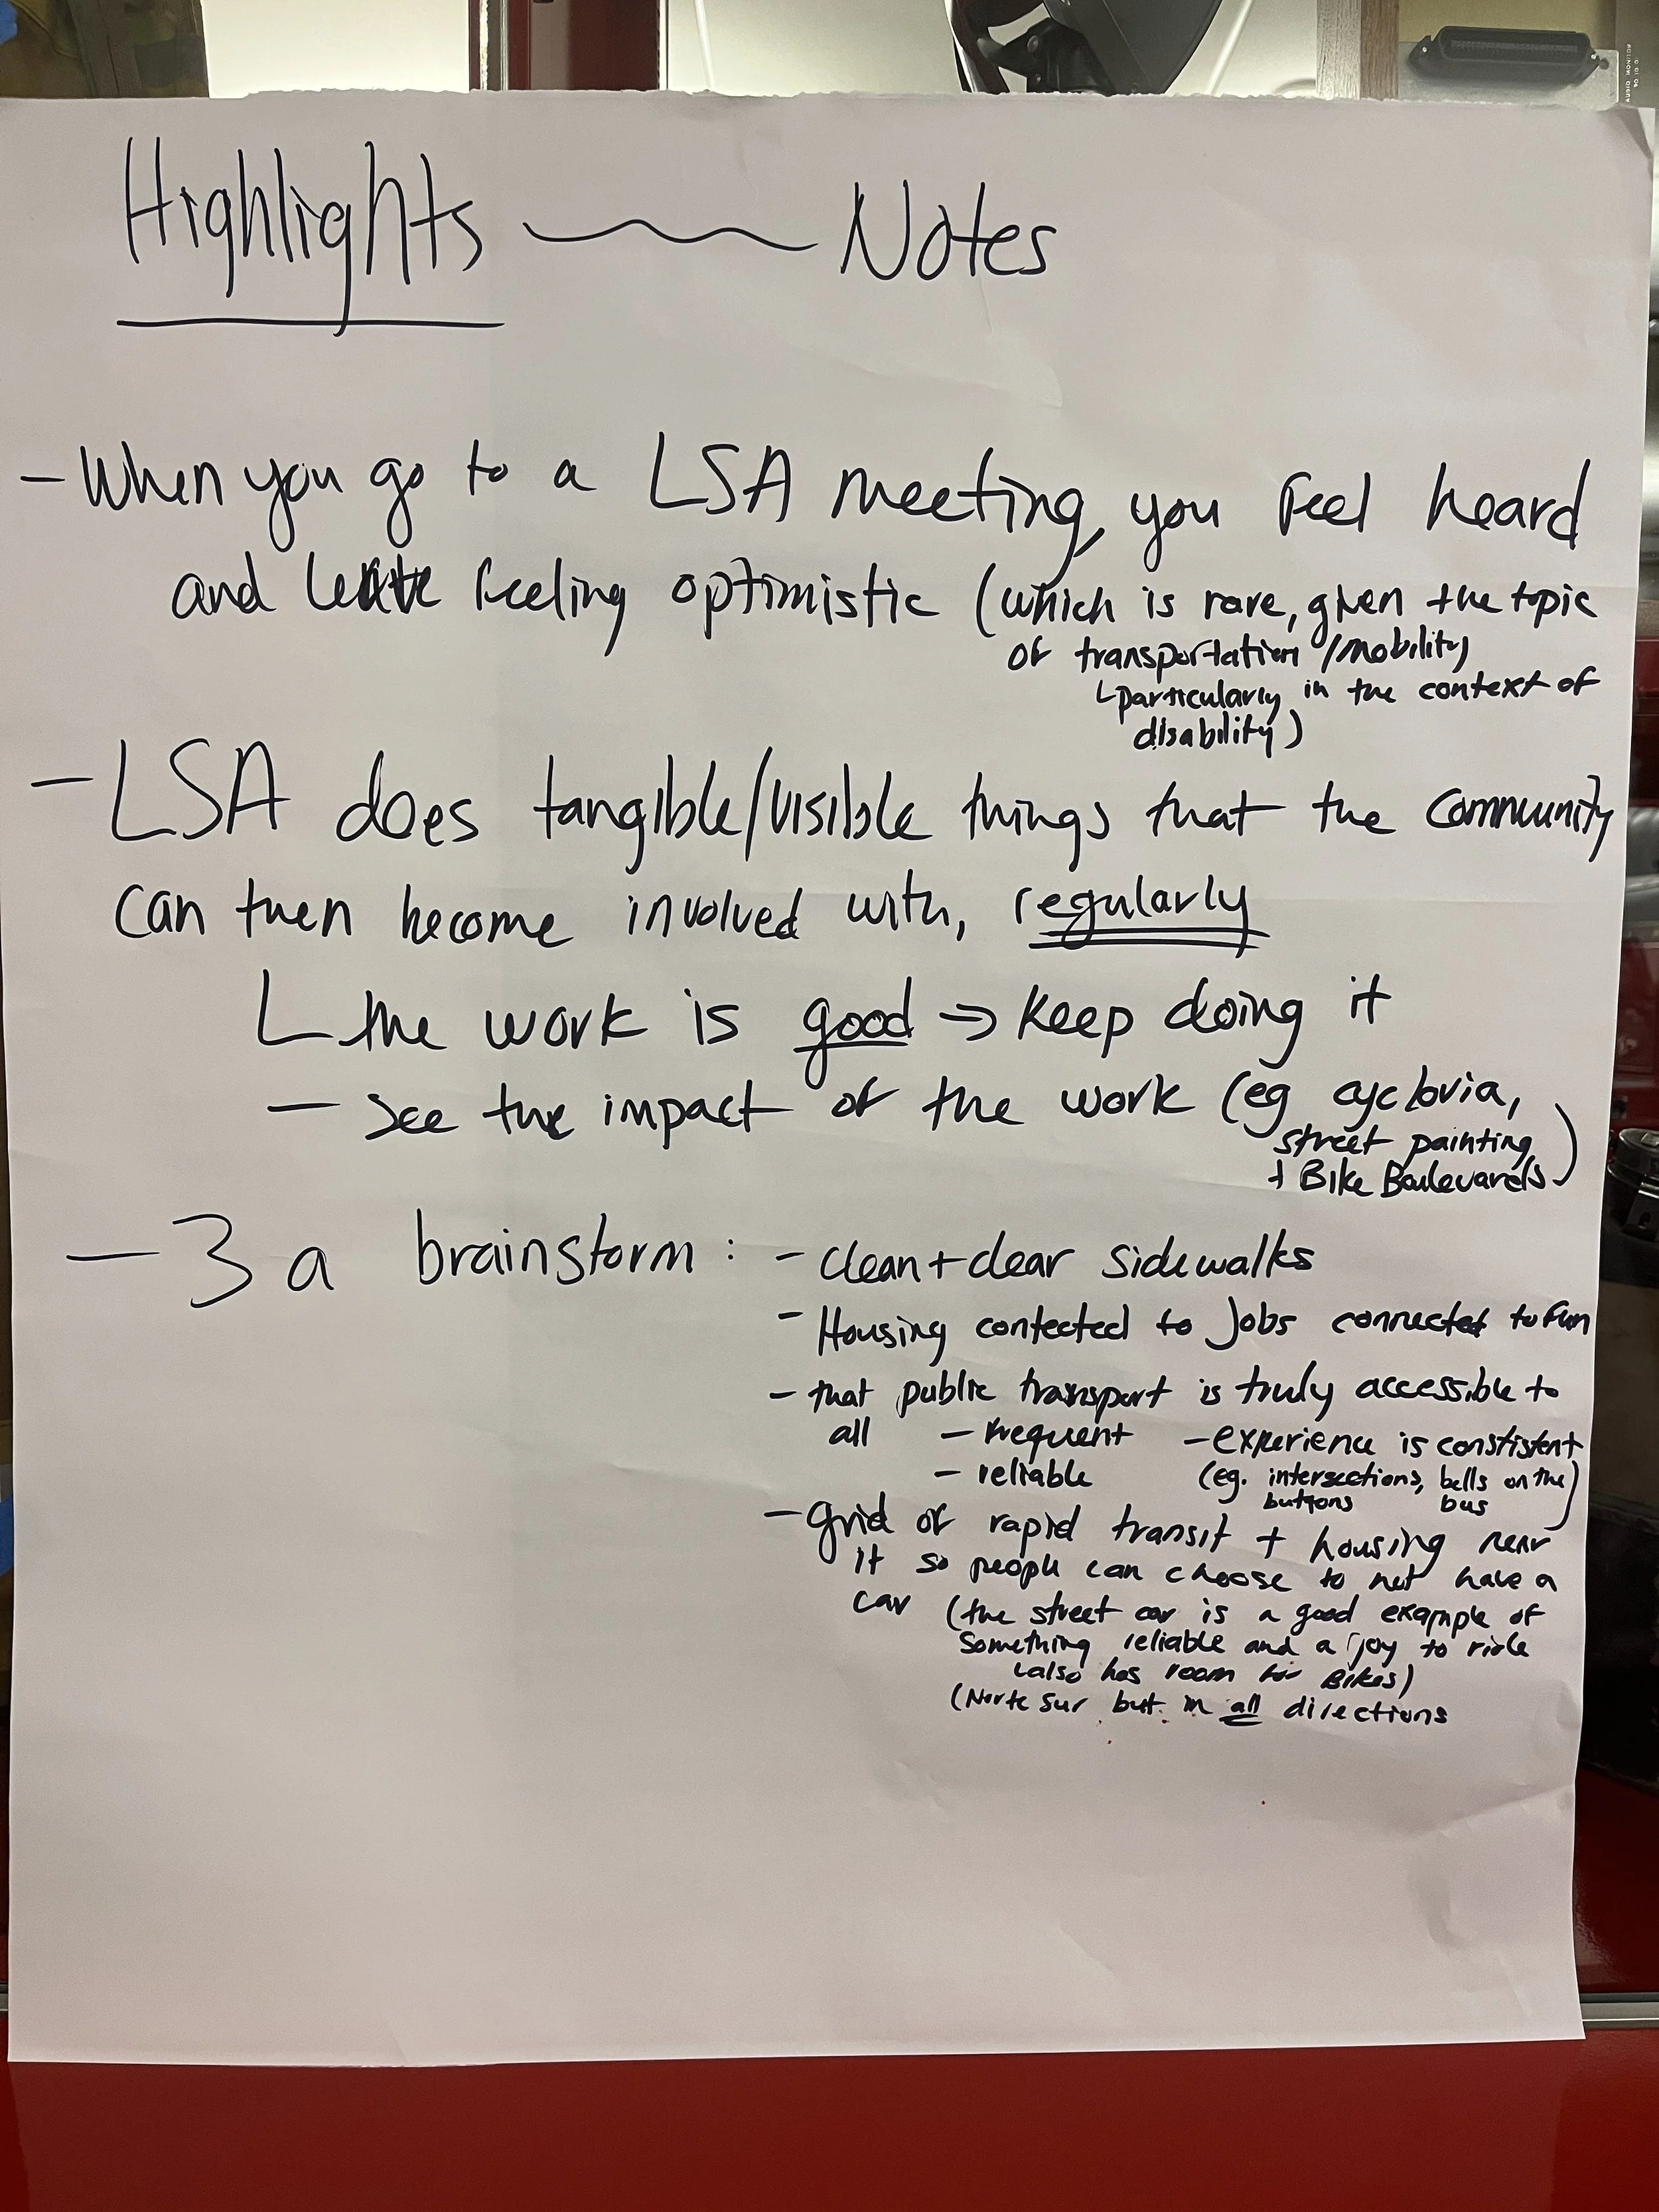 Highlights Notes
- When you go to a LSA meeting, you feel heard
and leave feeling optimistic (which is rare, given the topic
of transportation/mobility
particularly in the context of
disability)
- LSA does tangible/visible things that the community
can then become involved with, regularly
the work is good → keep doing it
- see the impact of the work (eg cyclovia,
street painting
+ Bike Boulevards)
- 3a brainstorm: - clean + clear sidewalks
- Housing contected to Jobs connected to fun
- that public transport is truly accessible to
all - frequent - experience is constistent
- reliable (eg. intersections, bells on the
buttons bus)
- grid of rapid transit + housing near
it so people can choose to not have a
car (the street car is a good example of
something reliable and a joy to ride
also has room for Bikes)
(Norte Sur but in all directions